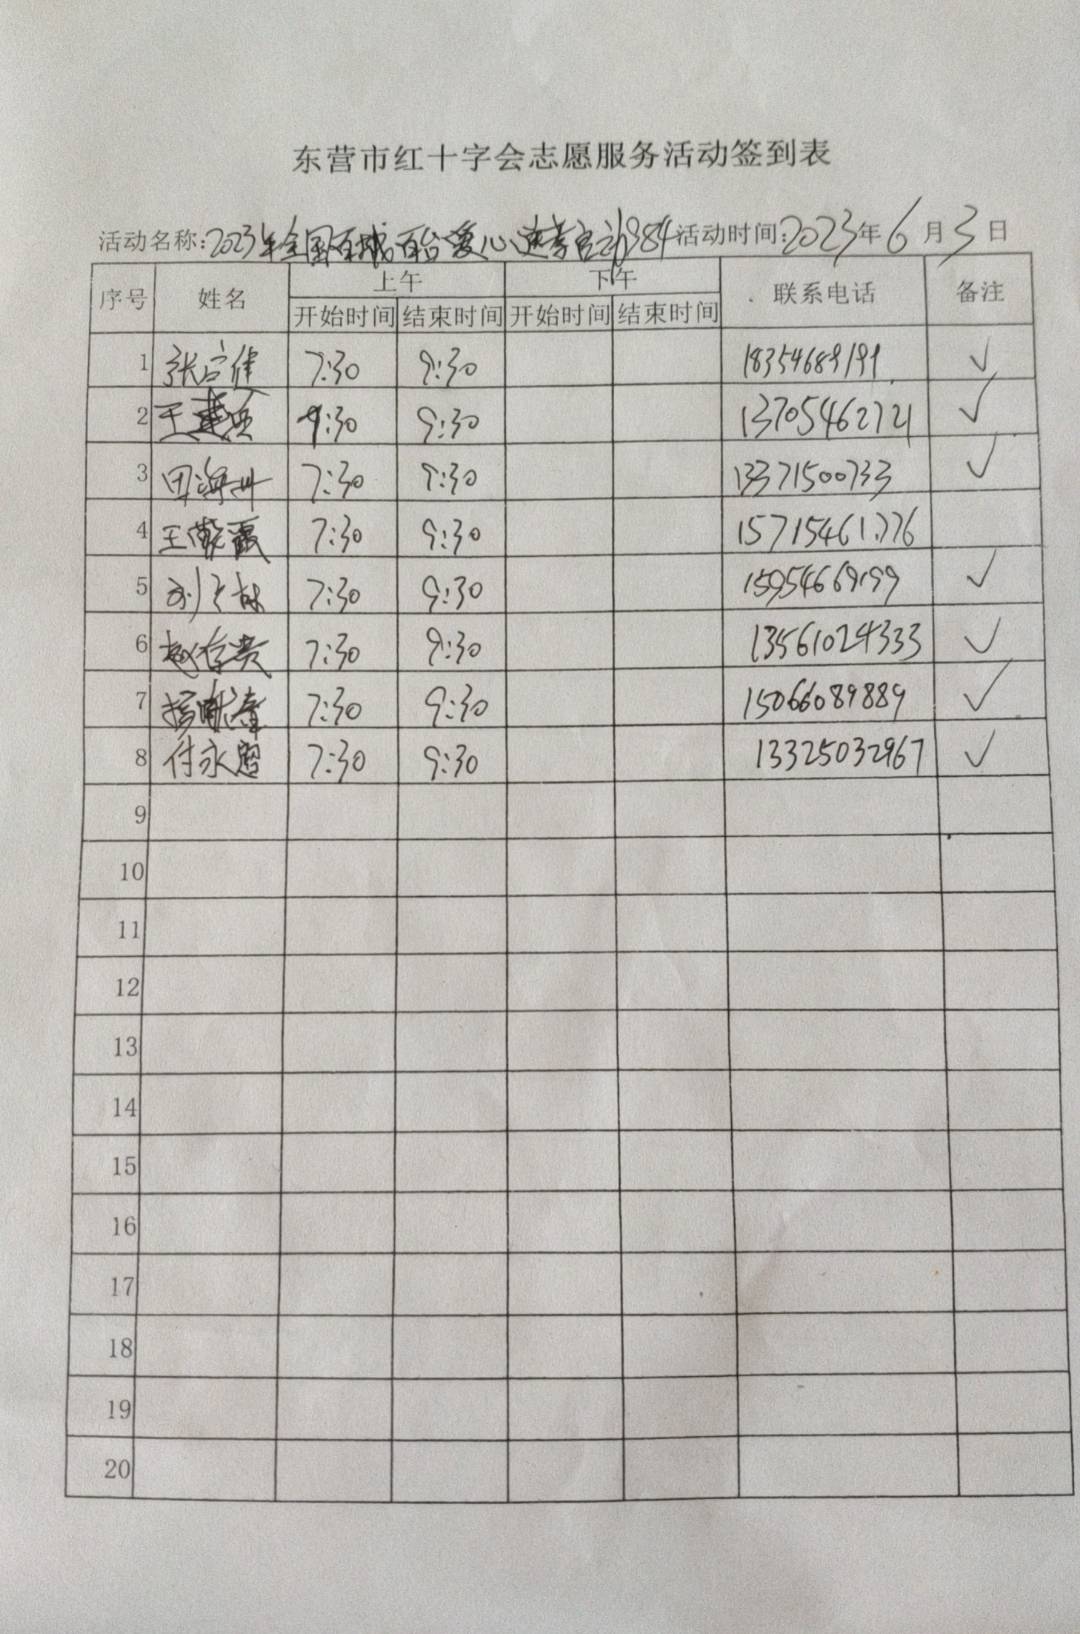 东营市红十字会志愿服务活动签到表
活动名称:2023年全国百城百台爱心送考启动984 活动时间:2023年6月3日
序号 姓名 上午 下午 联系电话 备注
开始时间 结束时间 开始时间 结束时间
1 张 健 7:30 9:30 ✓
2 王建 7:30 9:30 13705462721 ✓
3 田海州 7:30 9:30 13371500733 ✓
4 王 霞 7:30 9:30
5 刘 林 7:30 9:30 15954669199 ✓
6 赵存贵 7:30 9:30 13561024333 ✓
7 7:30 9:30 15066089889 ✓
8 付永超 7:30 9:30 13325032967 ✓
9
10
11
12
13
14
15
16
17
18
19
20